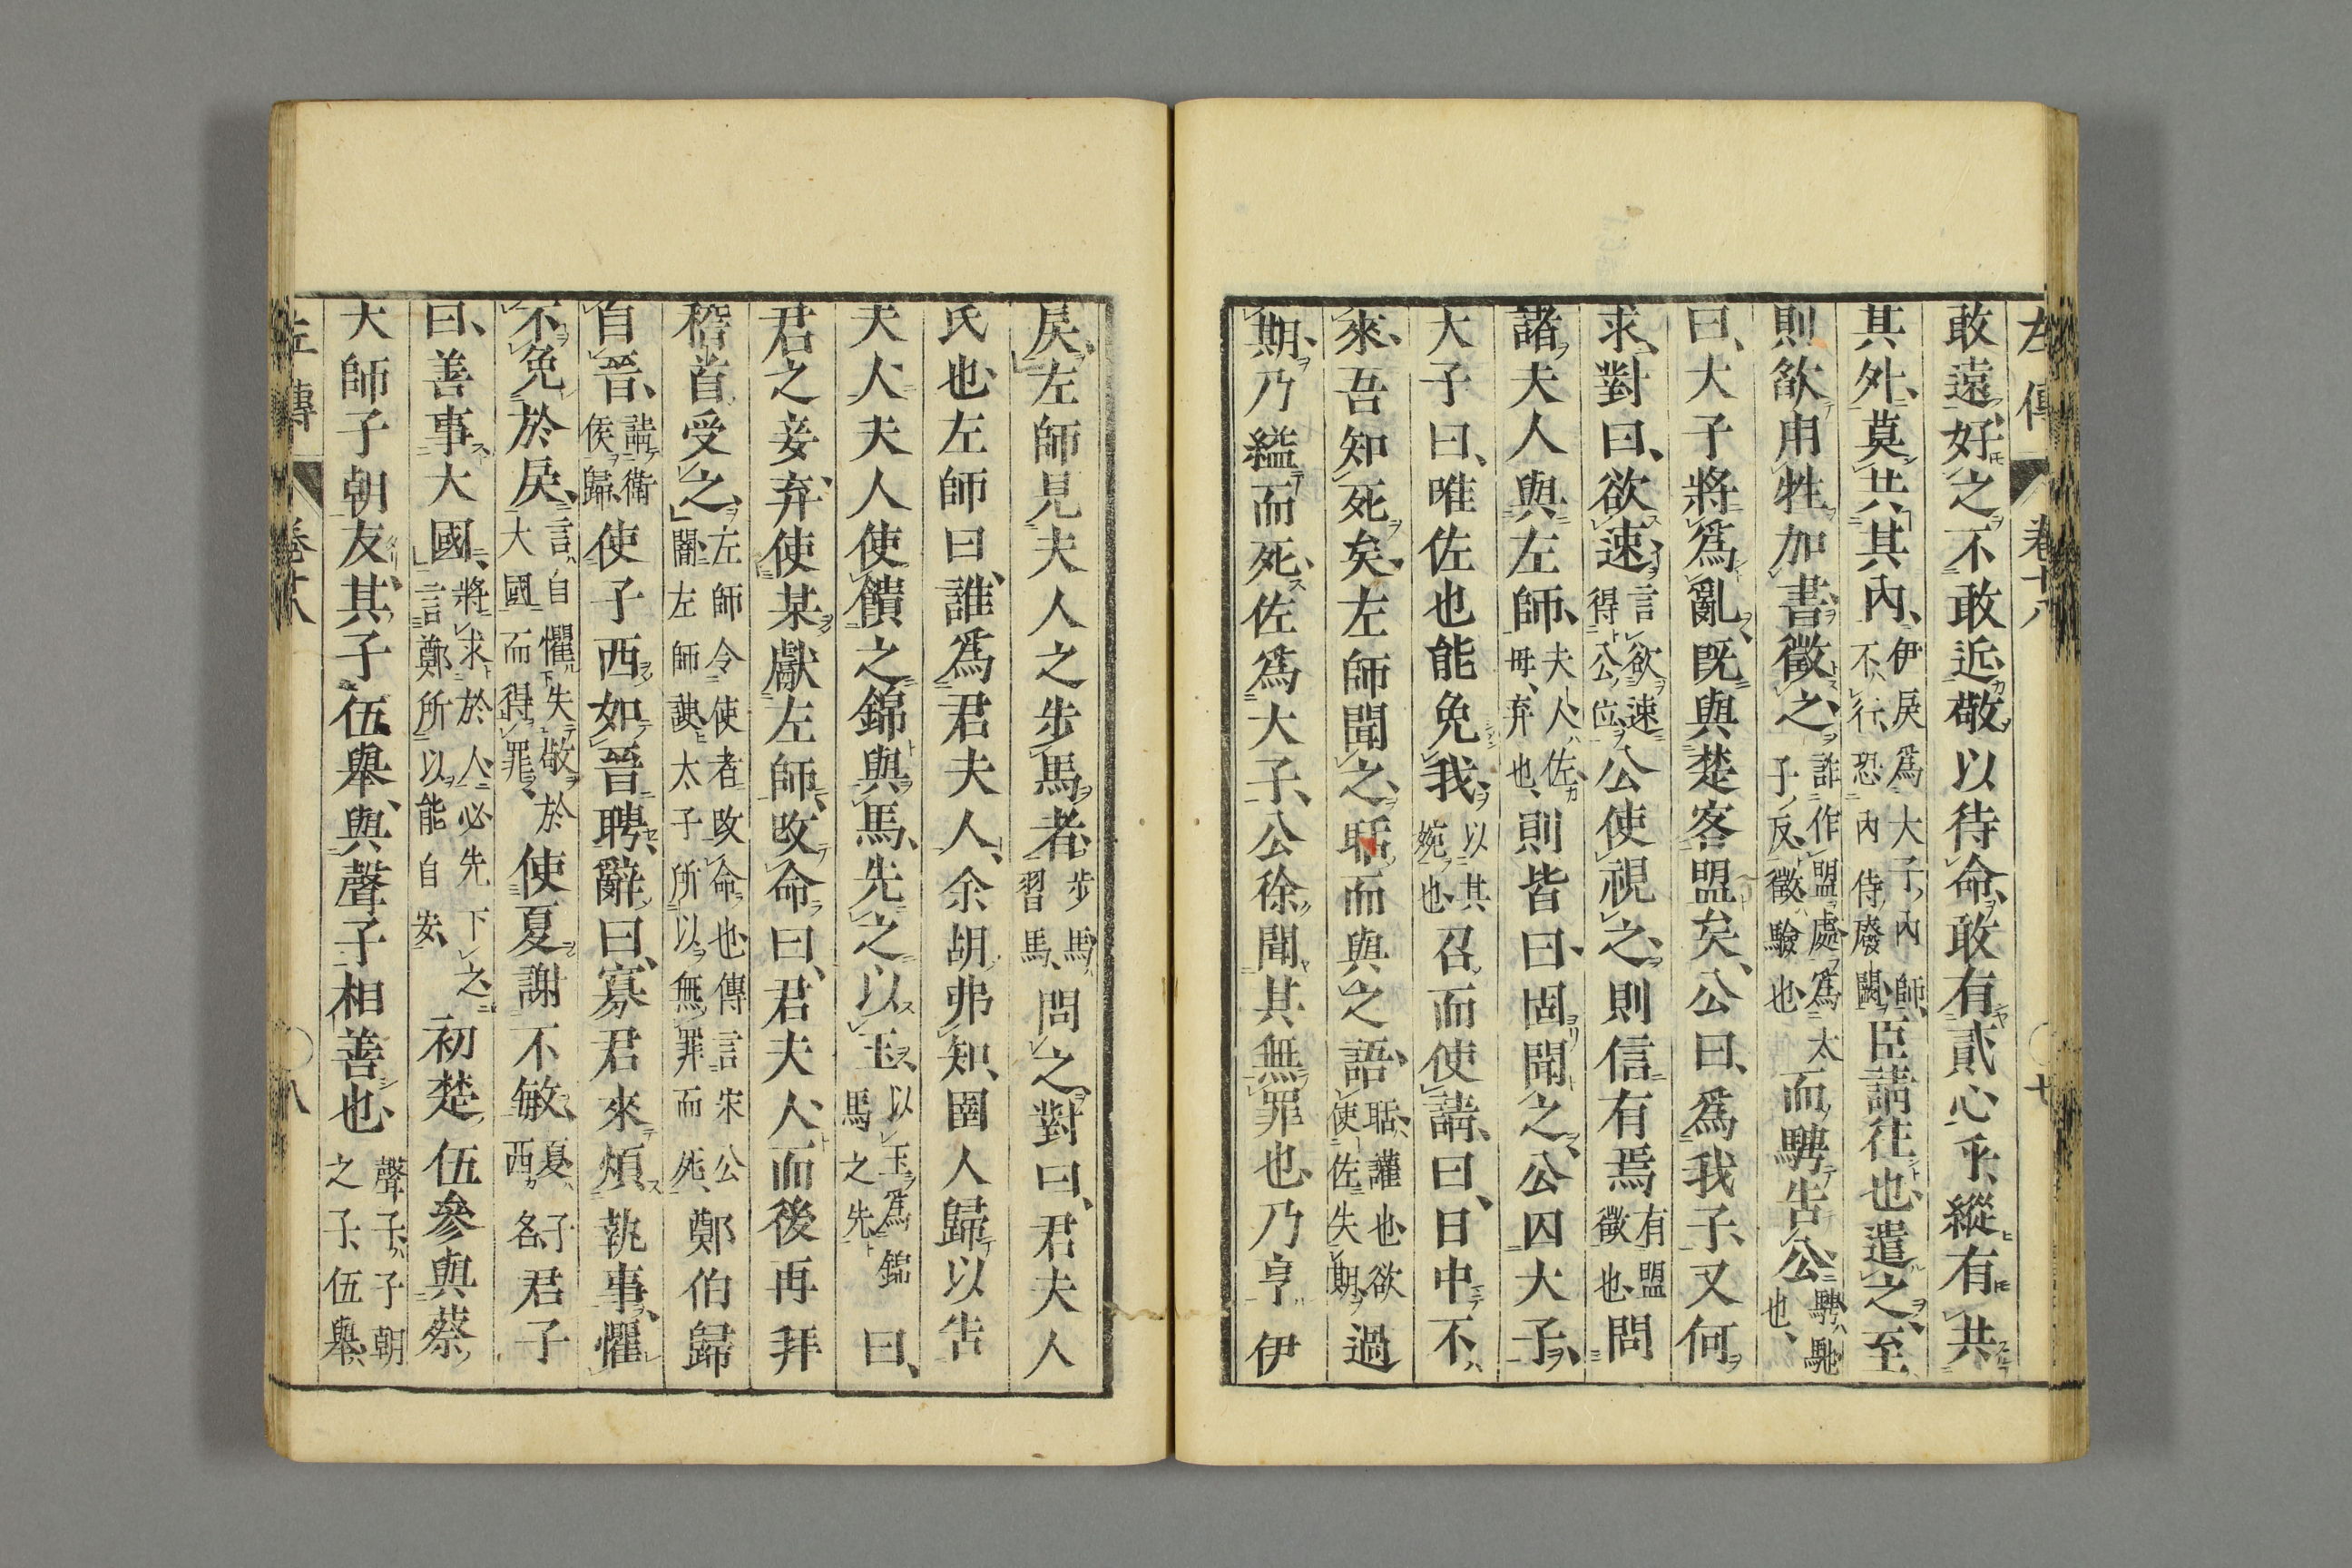 左傳 卷十八 七
敢遠好之不敢近敬以待命敢有貳心乎縱有共
其外莫共其內伊戾爲大子內師不行恐內侍廢闕臣請往也遣之至
則欿用牲加書徵之詐作盟處爲太子反徵驗也而騁告公騁馳也
曰大子將爲亂既與楚客盟矣公曰爲我子又何
求對曰欲速言欲速得公位公使視之則信有焉有盟徵也問
諸夫人與左師夫人佐母弃也則皆曰固聞之公囚大子
大子曰唯佐也能免我以其婉也召而使請曰日中不
來吾知死矣左師聞之聒而與之語聒讙也欲使佐失期過
期乃縊而死佐爲大子公徐聞其無罪也乃亨伊
戾左師見夫人之步馬者步馬習馬問之對曰君夫人
氏也左師曰誰爲君夫人余胡弗知圉人歸以告
夫人夫人使饋之錦與馬先之以玉以玉爲錦馬之先曰
君之妾弃使某獻左師改命曰君夫人而後再拜
稽首受之左師令使者改命也傳言宋公闇左師諛太子所以無罪而死鄭伯歸
自晉請衛侯歸使子西如晉聘辭曰寡君來煩執事懼
不免於戾言自懼失敬於大國而得罪使夏謝不敏夏子西名君子
曰善事大國將求於人必先下之言鄭所以能自安初楚伍參與蔡
大師子朝友其子伍舉與聲子相善也聲子子朝之子伍舉
左傳 卷十八 八